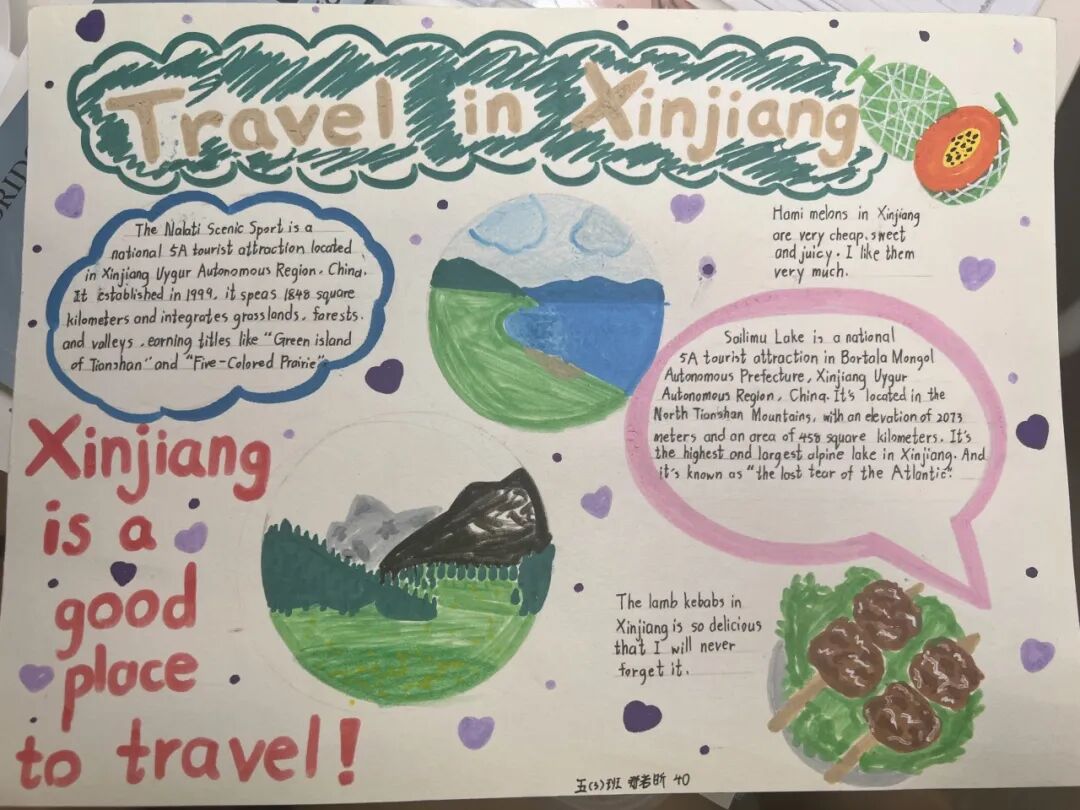 Travel in Xinjiang
The Nalati Scenic Sport is a
national 5A tourist attraction located
in Xinjiang Uygur Autonomous Region, China.
It established in 1999, it speas 1848 square
kilometers and integrates grasslands, forests,
and valleys, earning titles like "Green island
of Tianshan" and "Five-Colored Prairie".
Hami melons in Xinjiang
are very cheap, sweet
and juicy. I like them
very much.
Sailimu Lake is a national
5A tourist attraction in Bortala Mongol
Autonomous Prefecture, Xinjiang Uygur
Autonomous Region, China. It's located in the
North Tianshan Mountains, with an elevation of 2073
meters and an area of 458 square kilometers. It's
the highest and largest alpine lake in Xinjiang. And
it's known as "the last tear of the Atlantic".
Xinjiang
is a
good
place
to travel!
The lamb kebabs in
Xinjiang is so delicious
that I will never
forget it.
五(3)班 40